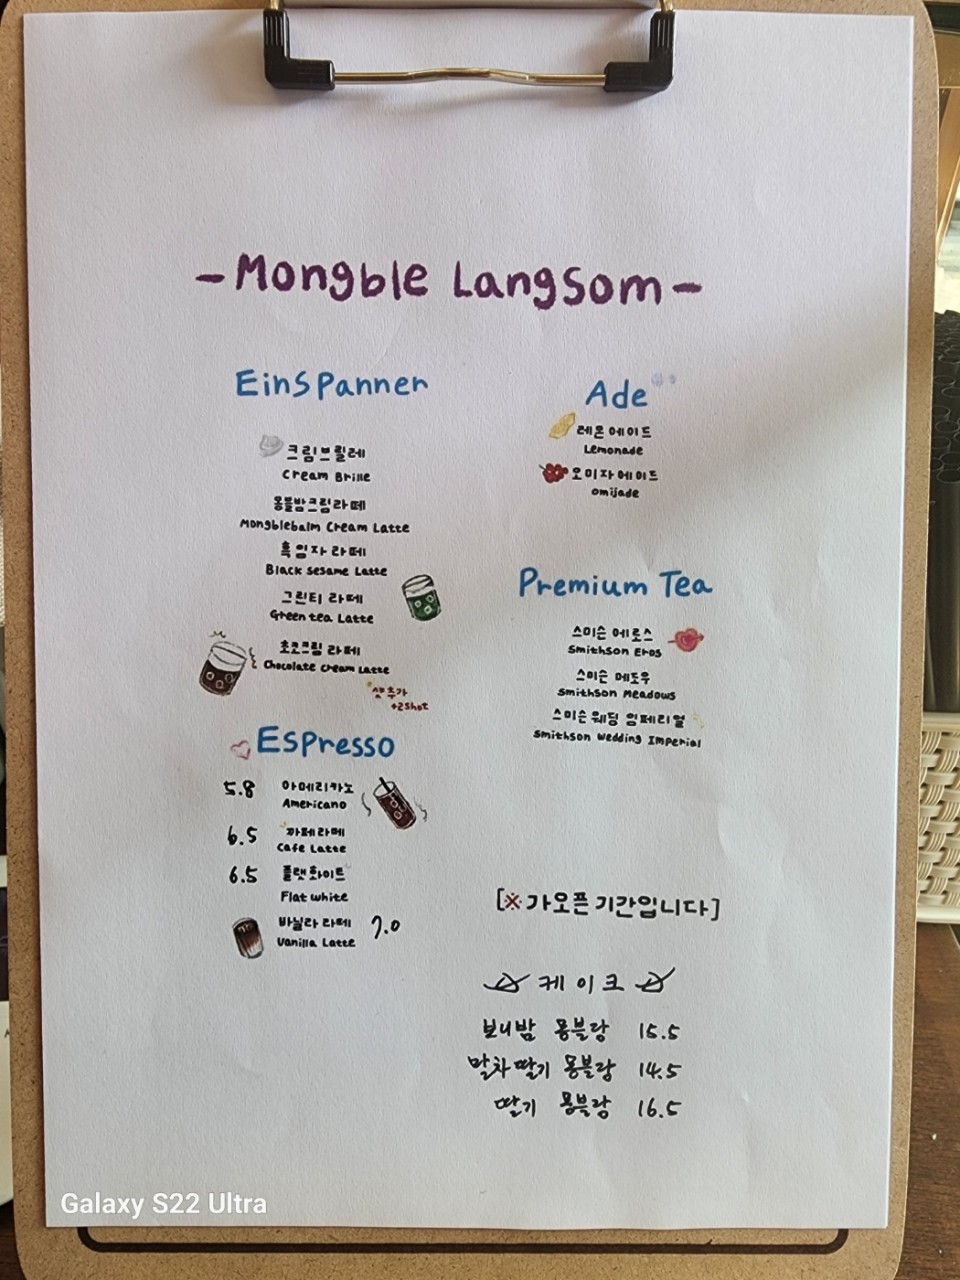 - Mongble Langsom -
Einspanner
크림브륄레
Cream Brille
몽블밤크림라떼
Mongblebalm Cream Latte
흑임자라떼
Black Sesame Latte
그린티 라떼
Green tea Latte
초코크림 라떼
Chocolate Cream Latte
샷추가
+2shot
Espresso
5.8 아메리카노
Americano
6.5 까페라떼
Cafe Latte
6.5 플랫화이트
Flat white
바닐라 라떼 7.0
Vanilla Latte
Ade
레몬에이드
Lemonade
오미자에이드
omijade
Premium Tea
스미슨 에로스
Smithson Eros
스미슨 메도우
Smithson Meadows
스미슨 웨딩 임페리얼
Smithson Wedding Imperial
[※가오픈 기간입니다]
☆ 케이크 ☆
보니밤 몽블랑 15.5
말차딸기 몽블랑 14.5
딸기 몽블랑 16.5
Galaxy S22 Ultra